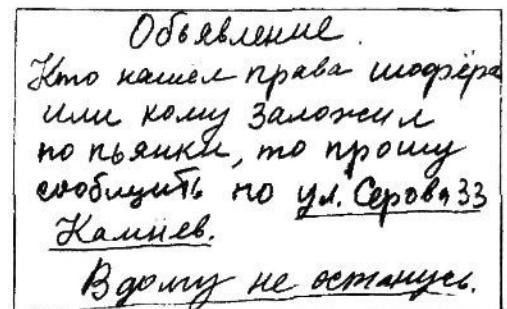 Объявление.
Кто нашел права шофёра
или кому заложил
по пьянки, то прошу
сообщить по ул. Серова 33
Камнев.
В долгу не останусь.